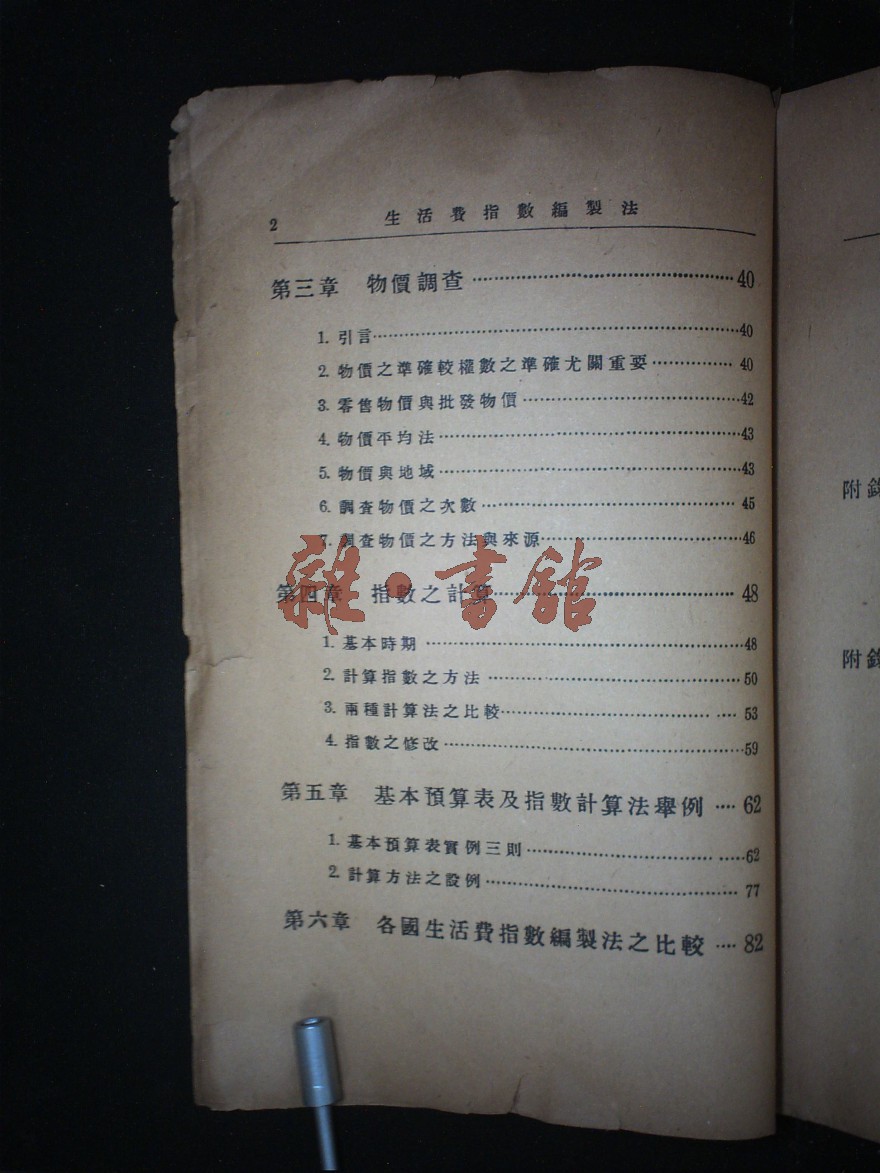 2 生活費指數編製法
第三章 物價調查……40
1. 引言……40
2. 物價之準確較權數之準確尤關重要……40
3. 零售物價與批發物價……42
4. 物價平均法……43
5. 物價與地域……43
6. 調查物價之次數……45
7. 調查物價之方法與來源……46
雜·書館
第四章 指數之計算……48
1. 基本時期……48
2. 計算指數之方法……50
3. 兩種計算法之比較……53
4. 指數之修改……59
第五章 基本預算表及指數計算法舉例……62
1. 基本預算表實例三則……62
2. 計算方法之設例……77
第六章 各國生活費指數編製法之比較……82
附錄
附錄